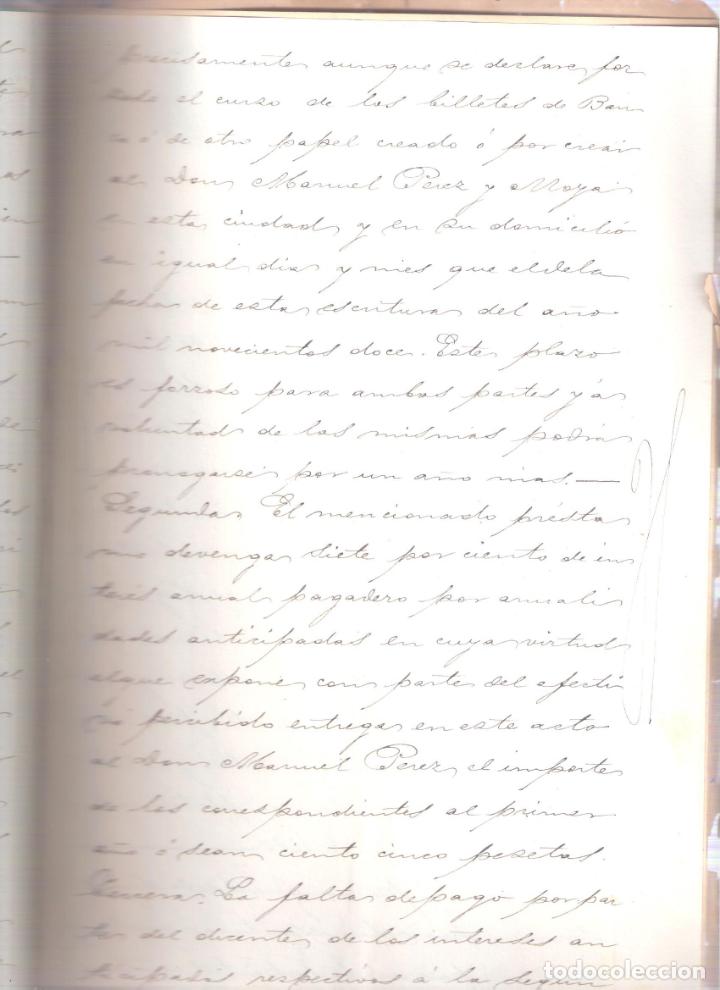 precisamente aunque se declare for
zoso el curso de los billetes de Ban
co ó de otro papel creado ó por crear
al Don Manuel Perez y Moya
en esta ciudad y en su domicilio
en igual dia y mes que el de la
fecha de esta escritura del año
mil novecientos doce. Este plazo
es forzoso para ambas partes y á
voluntad de las mismas podrá
prorrogarse por un año mas.—
Segunda. El mencionado présta
mo devenga siete por ciento de in
terés anual pagadero por anuali
dades anticipadas en cuya virtud
el que expone con parte del efecti
vo percibido entrega en este acto
al Don Manuel Perez el importe
de los correspondientes al primer
año ó sean ciento cinco pesetas.
Tercera. La falta de pago por par
te del dicente de los intereses an
ticipados respectivos á la segun
todocoleccion